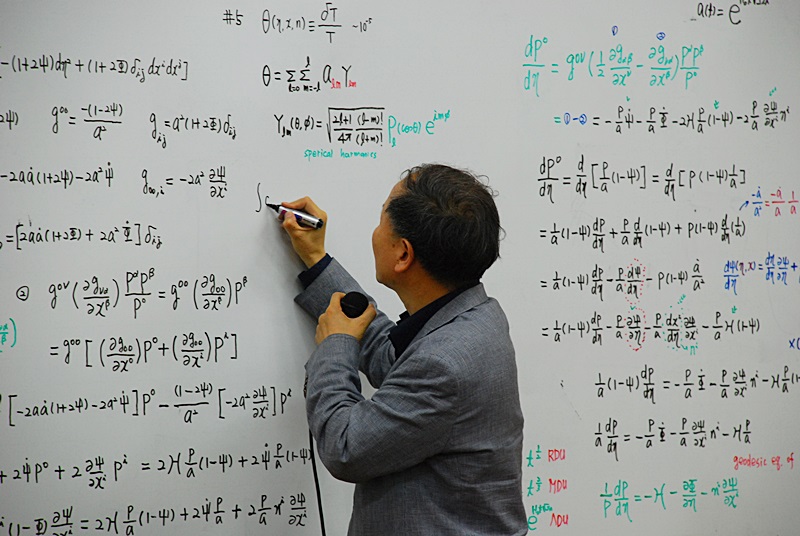 #5 θ(η,x,n) ≡ δT/T ~10⁻⁵
-(1+2ψ)dη² + (1+2Φ)δij dxⁱdxʲ]
θ = Σ_{l=0} Σ_{m=-l}^{l} a_lm Y_lm
g⁰⁰ = -(1-2ψ)/a² g_ij = a²(1+2Φ)δ_ij
Y_lm(θ,φ) = √(2l+1/4π (l-m)!/(l+m)!) P_l(cosθ) e^{imφ}
sperical harmonics
-2aȧ(1+2ψ) - 2a²ψ̇ g_00,i = -2a² ∂ψ/∂xⁱ
∫
= [2aȧ(1+2Φ) + 2a²Φ̇] δ_ij
② g^{0ν}(∂g_να/∂x^β) P^αP^β/P⁰ = g⁰⁰(∂g_00/∂x^β)P^β
= g⁰⁰[(∂g_00/∂x⁰)P⁰ + (∂g_00/∂xⁱ)Pⁱ]
[-2aȧ(1+2ψ) - 2a²ψ̇]P⁰ - (1-2ψ)/a² [-2a² ∂ψ/∂xⁱ]Pⁱ
+ 2ψ̇P⁰ + 2 ∂ψ/∂xⁱ Pⁱ = 2H P/a (1-ψ) + 2ψ̇ P/a (1-ψ)
(1-Φ) ∂ψ/∂xⁱ = 2H P/a (1-ψ) + 2ψ̇ P/a + 2 P/a nⁱ ∂ψ/∂xⁱ
dP⁰/dη = g^{0ν}(½ ∂g_αβ/∂x^ν - ∂g_να/∂x^β) P^αP^β/P⁰
① ②
= ①-② = -P/a ψ̇ - P/a Φ̇ - 2H P/a (1-ψ) - 2 P/a ∂ψ/∂xⁱ nⁱ
dP⁰/dη = d/dη [P/a (1-ψ)] = d/dη [P(1-ψ) 1/a]
-ȧ/a² = -ȧ/a 1/a
= 1/a (1-ψ) dP/dη + P/a d/dη (1-ψ) + P(1-ψ) d/dη (1/a)
= 1/a (1-ψ) dP/dη - P/a dψ/dη - P(1-ψ) ȧ/a²
dψ(η,x)/dη = dη/dη ∂ψ/∂η +
= 1/a (1-ψ) dP/dη - P/a ∂ψ/∂η - P/a dxⁱ/dη ∂ψ/∂xⁱ - P/a H(1-ψ)
nⁱ
1/a (1-ψ) dP/dη = -P/a Φ̇ - P/a ∂ψ/∂xⁱ nⁱ - H P/a (1
1/a dP/dη = -P/a Φ̇ - P/a ∂ψ/∂xⁱ nⁱ - H P/a
geodesic eq. of
1/P dP/dη = -H - ∂Φ/∂η - nⁱ ∂ψ/∂xⁱ
t^{1/2} RDU
t^{2/3} MDU
ΛDU